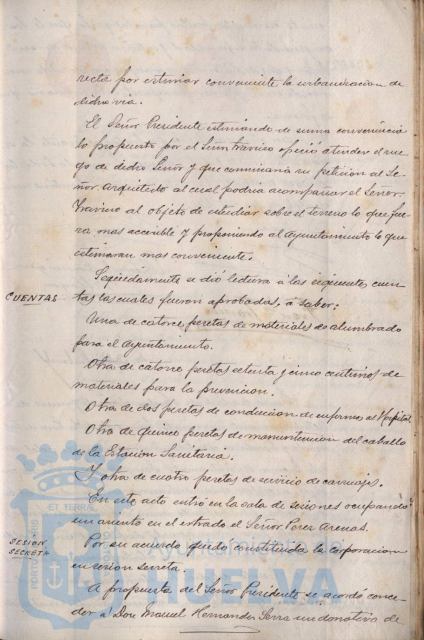 recta por estimar conveniente la urbanizacion de
dicha via.
El Señor Presidente estimando de suma conveniencia
lo propuesto por el Señor Traviso ofreció atender el rue-
go de dicho Señor y que comunicaria su peticion al Se-
ñor Arquitecto al cual podria acompañar el Señor
Traviso al objeto de estudiar sobre el terreno lo que fue-
ra mas accesible y proponiendo al Ayuntamiento lo que
estimaran mas conveniente.
Seguidamente se dió lectura á las siguientes cuen-
CUENTAS
tas las cuales fueron aprobadas, á saber:
Una de catorce pesetas de materiales de alumbrado
para el Ayuntamiento.
Otra de catorce pesetas setenta y cinco centimos de
materiales para la prevencion.
Otra de dos pesetas de conduccion de enfermo al Hospital.
Otra de quince pesetas de manuntencion del caballo
de la Estacion Sanitaria.
Y otra de cuatro pesetas de servicio de carruaje.
En este acto entró en la sala de sesiones ocupando
un asiento en el estrado el Señor Perez Arenas.
SESION
SECRETA
Por su acuerdo quedó constituida la Corporacion
en sesion secreta.
A propuesta del Señor Presidente se acordó conce-
der á Don Manuel Hernandez Serra un donativo de
ET TERRAE
PORTUS MARIS
Ayuntamiento de
HUELVA